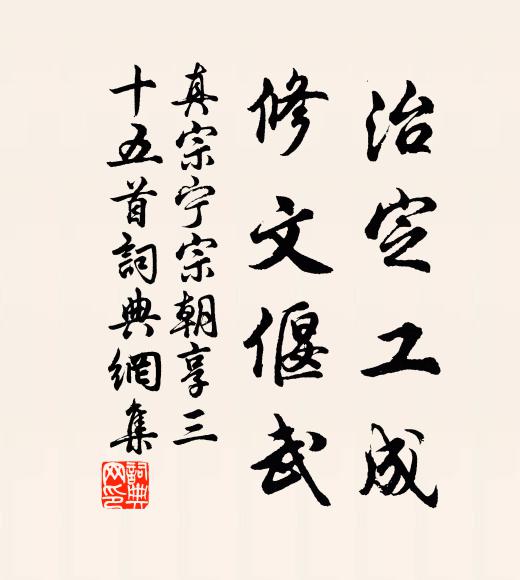 治定工成
修文偃武
真宗宁宗朝享三
十五首詞典網集
詞典网印